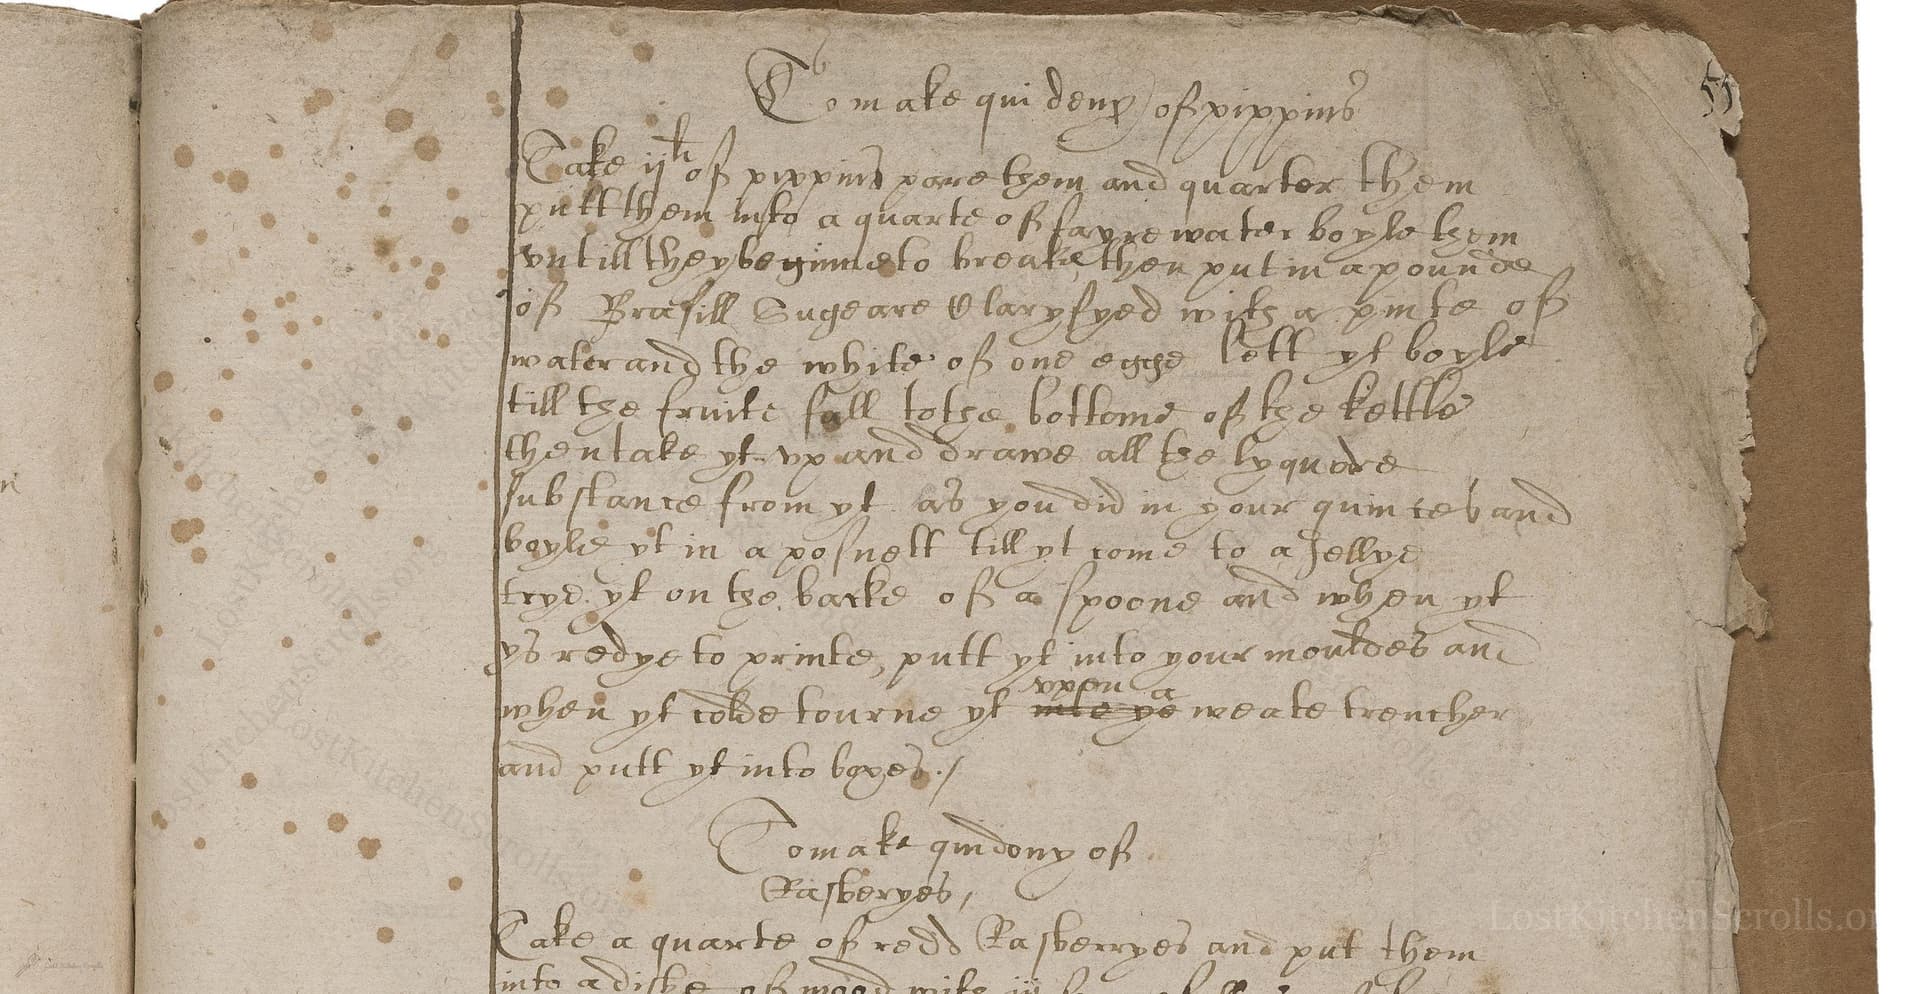 55
To make quideny of pippins
Take ij li of pippins pare them and quarter them
putt them into a quarte of fayre water boyle them
vntill they beginne to breake, then put in a pounde
of Brasill Sugeare Claryfyed with a pinte of
water and the white of one egge lett yt boyle
till the fruite fall to the bottome of the kettle
then take yt vp and drawe all the lyquore
substance from yt as you did in your quinces and
boyle yt in a posnett till yt come to a Jellye
trye yt on the backe of a spoone and when yt
ys redye to printe, putt yt into your mouldes and
when yt colde tourne yt into ye vpon a weate trencher
and putt yt into boxes ./
To make quidony of
Rasberyes,
Take a quarte of redd Rasberryes and put them
into a dishe of
LostKitchenScrolls.or